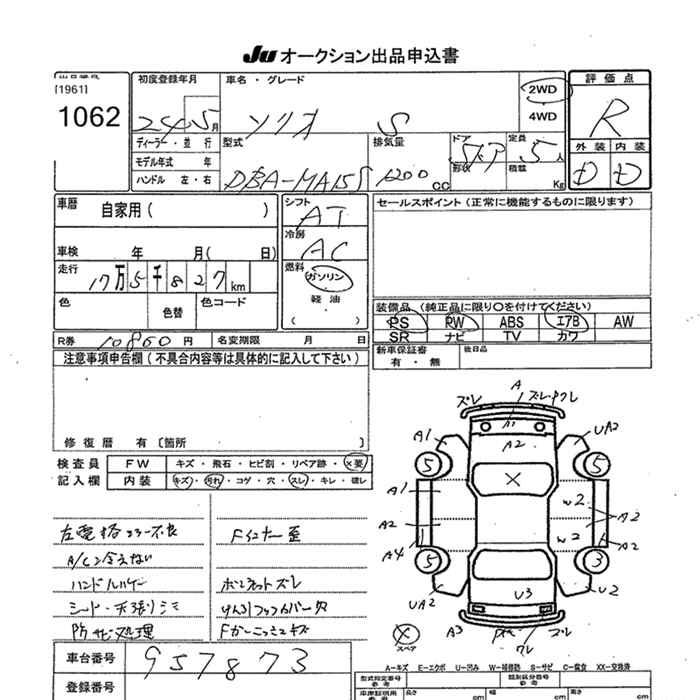 JU オークション出品申込書
出品番号
[1961]
1062
初度登録年月
24 5 月
ディーラー ・ 並 行
モデル年式 年
ハンドル 左 ・ 右
車名 ・ グレード
ソリオ S
2WD
4WD
型式
DBA-MA15S
排気量
1200 cc
ドア
形状
5ドア
定員
5 人
積載 Kg
評 価 点
R
外 装 内 装
D D
車歴
自家用 ( )
車検 年 月( 日)
走行
17万5千827 km
色
色替
色コード
シフト
AT
冷房
AC
燃料
ガソリン
軽 油
( )
セールスポイント (正常に機能するものに限ります)
装備品 (純正品に限り○を付けてください)
PS PW ABS エアB AW
SR ナビ TV カワ
新車保証書
有 ・ 無
後日品
R券 10860 円 名変期限 月 日
注意事項申告欄 (不具合内容等は具体的に記入して下さい)
修 復 歴 有 [箇所
検 査 員
記 入 欄
F W キズ ・ 飛石 ・ ヒビ割 ・ リペア跡 ・ X要
内 装 キズ ・ 汚れ ・ コゲ ・ 穴 ・ スレ ・ キレ ・ 破レ
左電格ミラー不良
A/C冷えない
シート・天張りシミ
防サビ処理
Fインナー歪
ボンネットズレ
Fガーニッシュキズ
A
ズレ
A1
A2
A1
UA2
5
5
X
A1
A2
A4
W2
W2
A2
A2
5
3
UA2
U2
U3
A3
ワレ
ズレ
X
スペア
車台番号 957873
登録番号
A-キズ E-エクボ U-凹み W-補修跡 S-サビ C-腐食 XX-交換済
型式指定番号
参 考
類別区分番号
参 考
車庫証明用
長さ cm
幅 cm
高さ cm